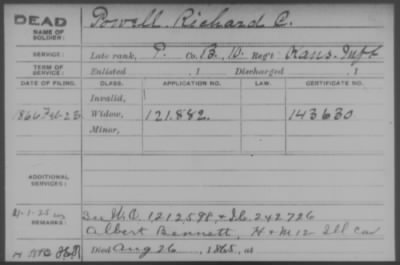 DEAD
NAME OF SOLDIER:
Powell, Richard C.
SERVICE:
Late rank, P. Co. B, 10. Reg't Kans. Inf.
TERM OF SERVICE:
Enlisted , 1 Discharged , 1
DATE OF FILING. CLASS. APPLICATION NO. LAW. CERTIFICATE NO.
Invalid,
1866 Feb. 23 Widow, 121.882. 143630
Minor,
ADDITIONAL SERVICES:
REMARKS:
See W.O. 1212598, & 242726
Albert Bennett, H & M 12 Ill Cav
Died Aug 26, 1865, at